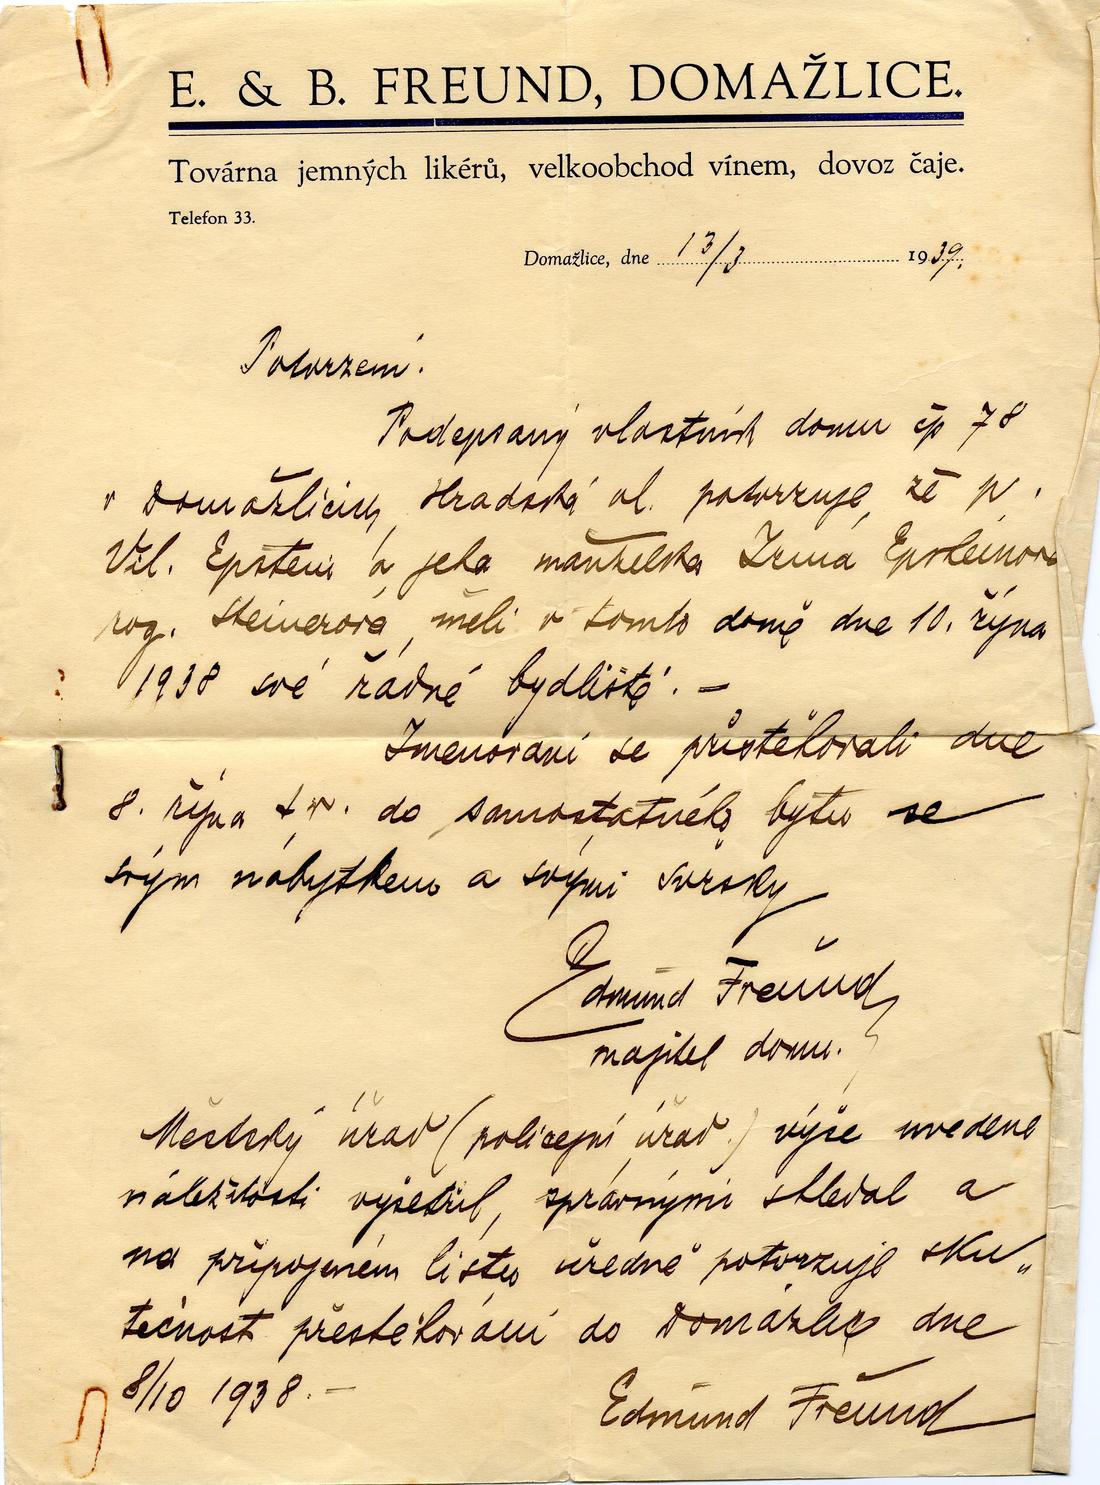 E. & B. FREUND, DOMAŽLICE.
Továrna jemných likérů, velkoobchod vínem, dovoz čaje.
Telefon 33.
Domažlice, dne 13/3 1939.
Potvrzení.
Podepsaný vlastník domu čp 78
v Domažlicích, Hradská ul. potvrzuje, že p.
Vil. Epstein a jeho manželka Irma Epsteinová
roz. Steinerová, měli v tomto domě dne 10. října
1938 své řádné bydliště. —
Jmenovaní se přistěhovali dne
8. října t.r. do samostatného bytu se
svým nábytkem a svými svršky
Edmund Freund
majitel domu.
Městský úřad (policejní úřad) výše uvedené
náležitosti vyšetřil, správnými shledal a
na připojeném listu úředně potvrzuje sku„
tečnost přestěhování do Domažlic dne
8/10 1938. —
Edmund Freund